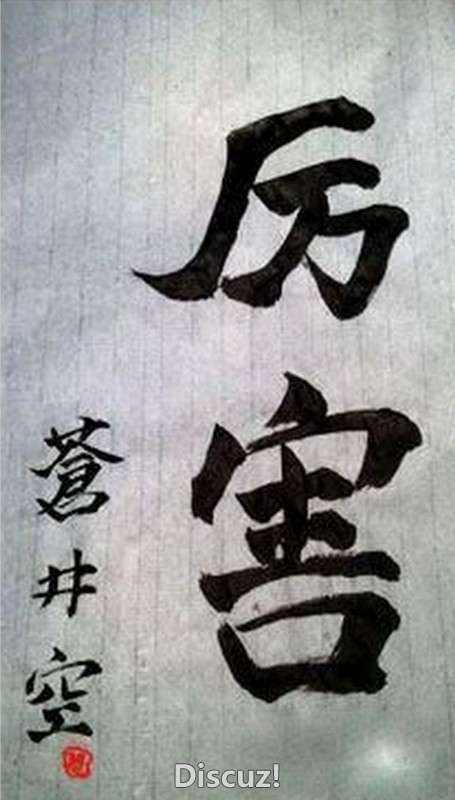 厉害
蒼井空
Discuz!